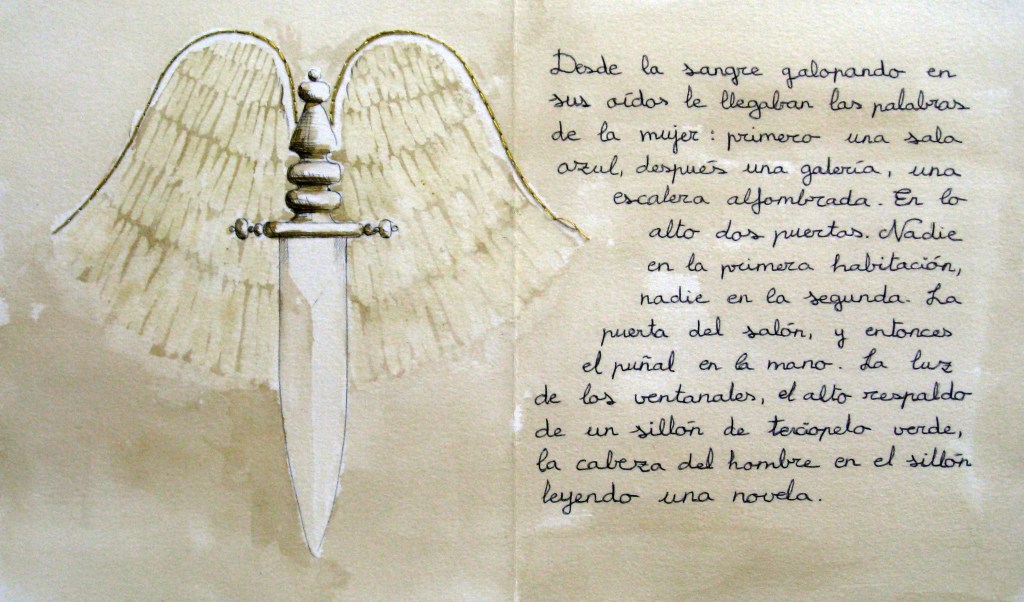 Desde la sangre galopando en
sus oídos le llegaban las palabras
de la mujer: primero una sala
azul, después una galería, una
escalera alfombrada. En lo
alto dos puertas. Nadie
en la primera habitación,
nadie en la segunda. La
puerta del salón, y entonces
el puñal en la mano. La luz
de los ventanales, el alto respaldo
de un sillón de terciopelo verde,
la cabeza del hombre en el sillón
leyendo una novela.